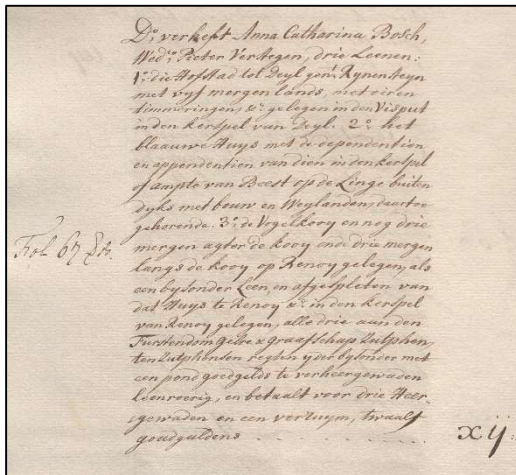 Do. verheft Anna Catharina Bosch,
Wede. Pieter Verstegen, drie Leenen:
1o. die Hofstad tot Deyl gent. Rynensteyn
met vyf mergen lands, met ciren
timmeringen, &c. gelegen in den Visput
in den kerspel van Deyl. 2o. het
blaauwe Huys met de dependentien
en appendentien van dien in den kerspel
of ampte van Beest op de Linge buiten
dyks met bouw en Weylanden, daertoe
gehorende. 3o. de Vogelkooy en nog drie
mergen agter de kooy ende drie mergen
langs de kooy op Renoy gelegen, als
een bysonder Leen, en afgespleten van
dat Huys te Renoy &c. in den kerspel
van Renoy gelegen, alle drie aan den
Furstendom Gelre & graafschap Zutphen,
ten Zutphensen regten yder bysonder met
een pond goedgelds te verheergewaden
leenroerig, en betaalt voor drie Heer-
gewaden en een versuym, twaalf
goudguldens
xij:
Fol. 67